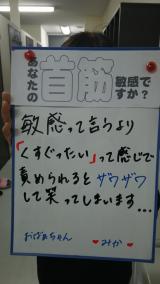 あなたの首筋敏感ですか？
敏感って言うより
「くすぐったい」って感じで
責められるとザワザワ
して笑ってしまいます…
おばあちゃん ♥みか♥